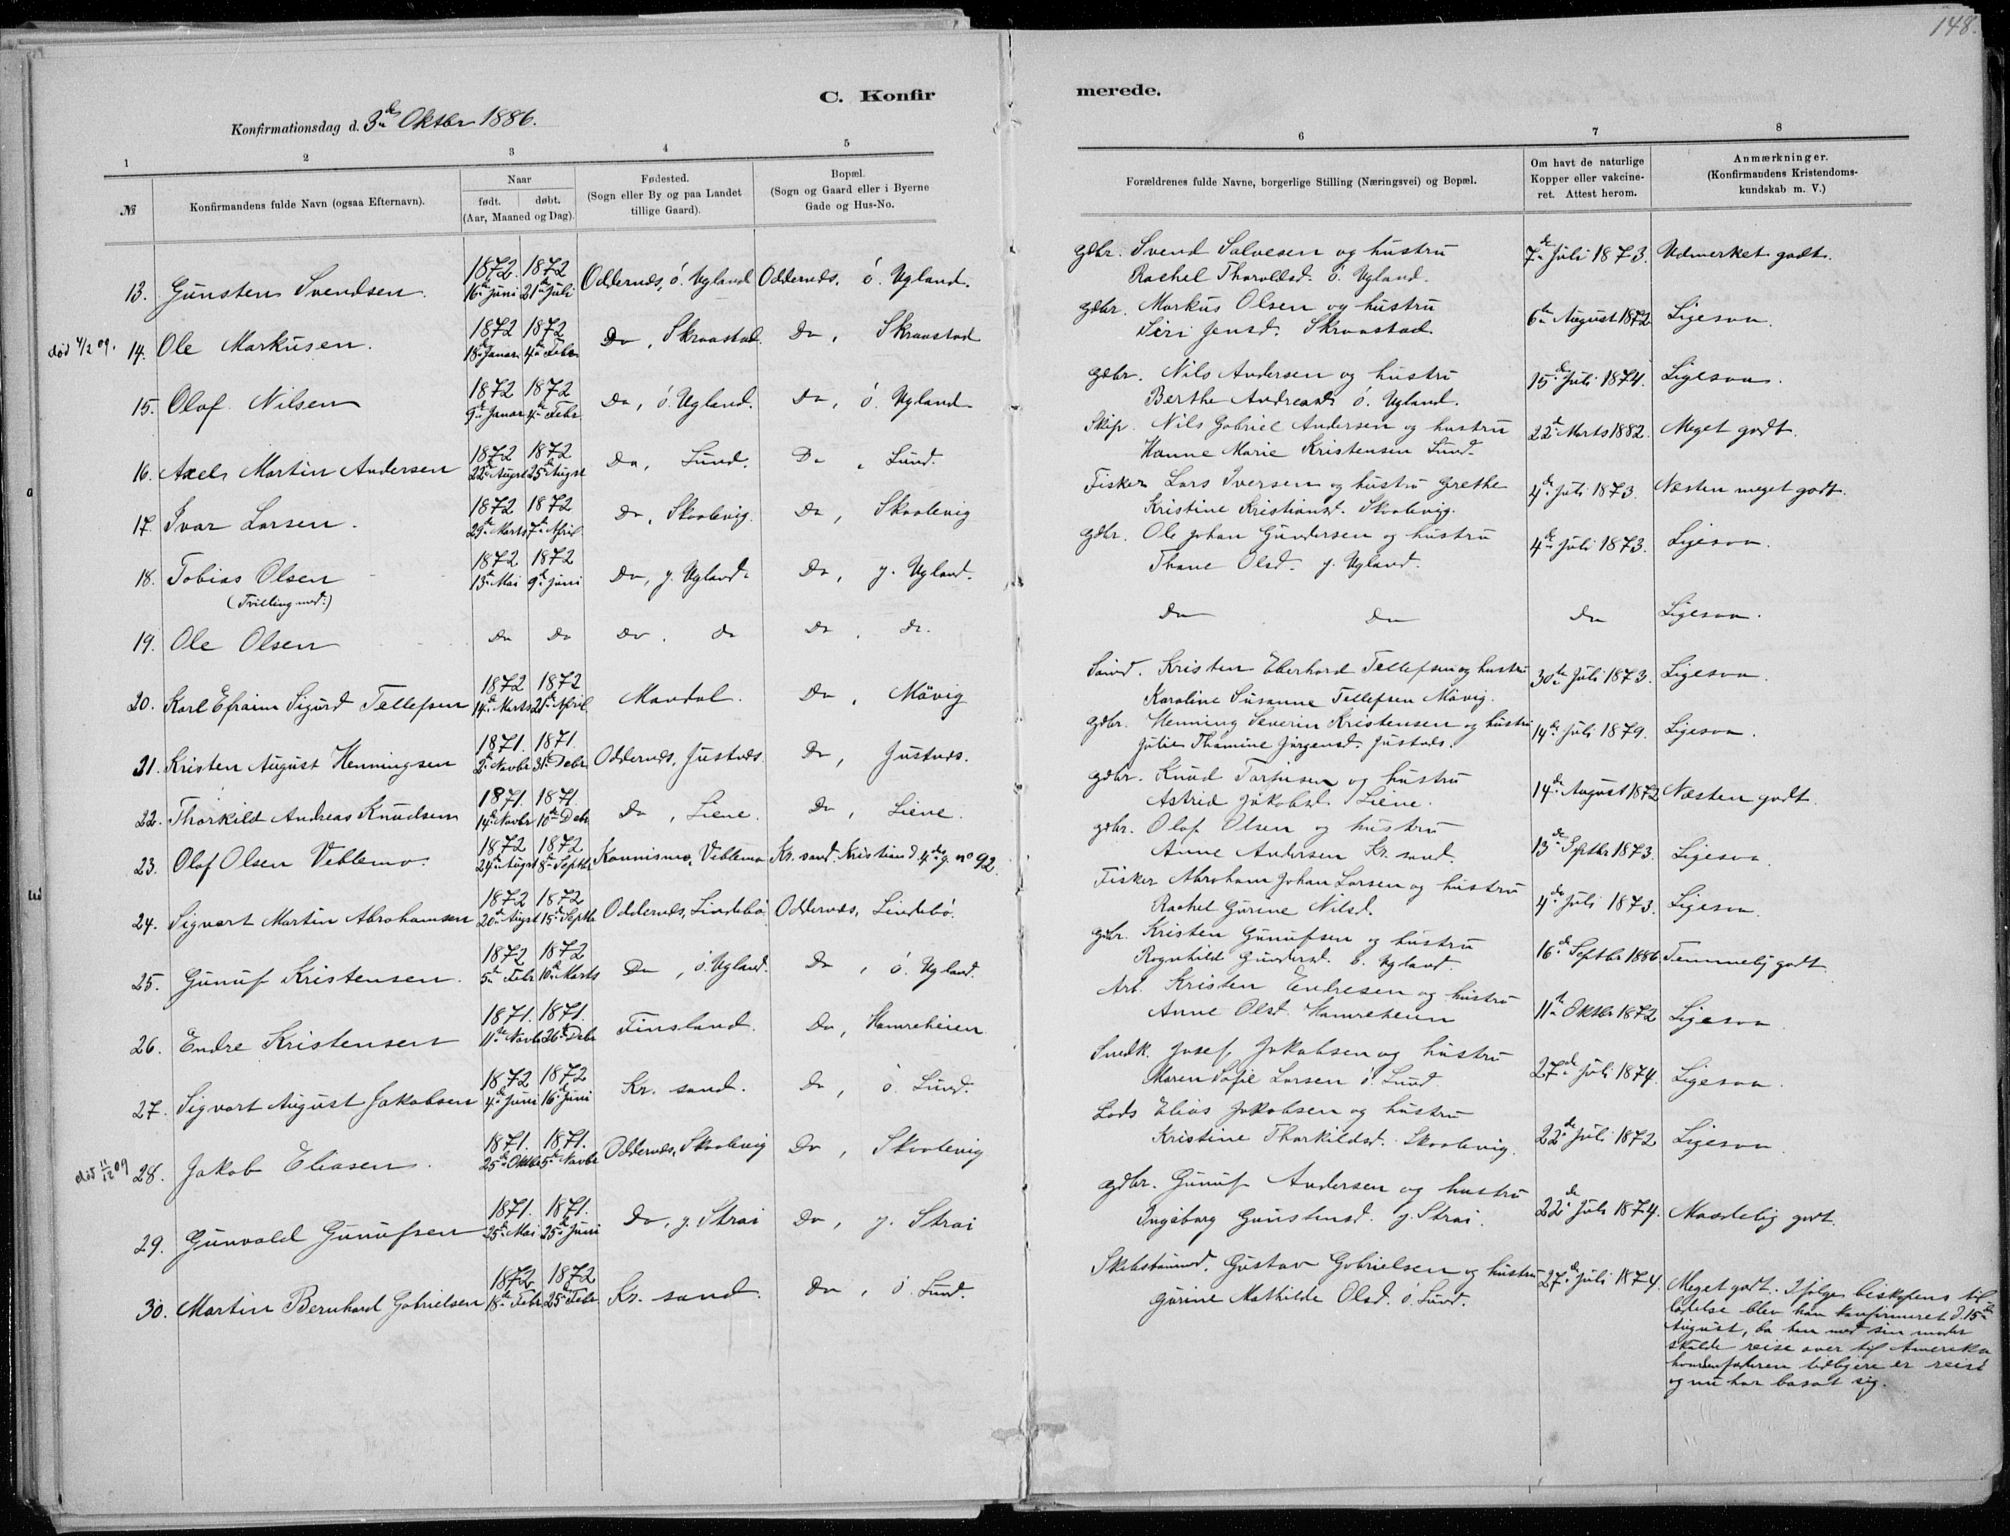 148.
C. Konfirmerede.
Konfirmationsdag d. 3de Oktbr 1886.
1 2 3 4 5 6 7 8
№ Konfirmandens fulde Navn (ogsaa Efternavn). Naar født. døbt. (Aar, Maaned og Dag). Fødested. (Sogn eller By og paa Landet tillige Gaard). Bopæl. (Sogn og Gaard eller i Byerne Gade og Hus-No. Forældrenes fulde Navne, borgerlige Stilling (Næringsvei) og Bopæl. Om havt de naturlige Kopper eller vakcineret. Attest herom. Anmærkninger. (Konfirmandens Kristendomskundskab m. V.)
13. Gunsten Svendsen. 1872. 16de Juni 1872 21de Juli Oddernæs, ö. Ugland Oddernæs, ö. Ugland. Gdbr. Svend Salvesen og hustru Rachel Thorvaldsd. ö. Ugland. 7de Juli 1873. Udmerket godt.
død 4/2 09. 14. Ole Markusen. 1872 18de Januar 1872 4de Febr Do, Skraastad Do, Skraastad Gdbr. Markus Olsen og hustru Siri Jensd. Skraastad 6te August 1872 Ligesaa.
15. Olaf Nilsen 1872 9de Januar 1872 4de Febr Do, ö. Ugland. Do, ö. Ugland Gdbr. Nils Andersen og hustru Berthe Andreasd. ö. Ugland. 15de Juli 1874. Ligesaa.
16. Axels Martin Andersen 1872 22de Augst 1872 25de Augst Do, Lund. Do, Lund. Skip. Nils Gabriel Andersen og hustru Hanne Marie Kristensen Lund. 22de Marts 1882. Meget godt.
17. Ivar Larsen. 1872 29de Marts 1872 7de April Do, Skaalevig. Do, Skaalevig Fisker Lars Iversen og hustru Grethe Kristine Kristiansd. Skaalevig. 4de Juli 1873. Næsten meget godt.
18. Tobias Olsen (Tvilling med:) 1872 13de Mai 1872 9de Juni Do, y. Ugland. Do, y. Ugland. Gdbr. Ole Johan Gundersen og hustru Thane Olsd. y. Ugland. 4de Juli 1873. Ligesaa.
19. Ole Olsen Do Do Do. do Do, do. Do Do Do Ligesaa.
20. Karl Efraim Sigurd Tellefsen 1872 14de Marts 1872 21de April Mandal. Do, Mövig Kristen Eberhard Tellefsen og hustru Karoline Susanne Tellefsen Mövig. 30te Juli 1873. Ligesaa.
21. Kristen August Henningsen 1871. 2de Novbr 1871. 31te Debr Oddernæs, Justnæs Do, Justnæs. Gdbr. Henning Severin Kristensen og hustru Julie Thomine Jörgensd. Justnæs. 14de Juli 1879. Ligesaa.
22. Thorkild Andreas Knudsen 1871. 14de Novbr 1871. 10de Debr Do, Liene. Do, Liene. Gdbr. Knud Torjusen og hustru Astrid Jakobsd. Liene. 14de August 1872 Næsten godt.
23. Olaf Olsen Veblemo. 1872 24de Augst 1872 8de Septbr Konnismo, Veblemo Kr. sand. Kristian d. 4des g. no 92. Gdbr. Olaf Olsen og hustru Anne Andersen Kr. sand. 13de Septbr 1873. Ligesaa.
24. Sigvart Martin Abrahamsen 1872 20de Augst 1872 15de Septbr Oddernæs, Lindebö Oddernæs, Lindebö. Fisker Abraham Johan Larsen og hustru Rachel Gurine Nilsd. 4de Juli 1873. Ligesaa.
25. Gunuf Kristensen. 1872 5te Febr 1872 10de Marts Do, ö. Ugland. Do, ö. Ugland. Gdbr. Kristen Gunufsen og hustru Ragnhild Gundersd. ö. Ugland. 16de Septbr 1886 Temmelig godt
26. Endre Kristensen 1871. 11te Novbr 1871. 26de Debr Finsland. Do, Hamreheien Arb. Kristen Endresen og hustru Anne Olsd. Hamreheien 11te Oktbr 1872 Ligesaa.
27. Sigvart August Jakobsen 1872 4de Juni 1872 16de Juni Kr. sand. Do, ö. Lund. Snedk. Josef Jakobsen og hustru Maren Sofie Larsen ö. Lund. 27de Juli 1874. Ligesaa.
død 11/12 09 28. Jakob Eliasen. 1871. 25de Oktbr 1871. 5te Novbr Oddernæs, Skaalevig Do, Skaalevig Lods Elias Jakobsen og hustru Kristine Thorkildsd. Skaalevig. 22de Juli 1872 Ligesaa.
29. Gunvald Gunufsen 1871. 25de Mai 1871. 25de Juni Do, y. Strai Do, y. Strai Gdbr. Gunuf Andersen og hustru Ingeborg Gunstensd. y. Strai. 22de Juli 1874. Maadelig godt.
30. Martin Bernhard Gabrielsen 1872 18de Febr 1872 25de Febr Kr. sand. Do, ö. Lund. Skibstømmd. Gustav Gabrielsen og hustru Gurine Mathilde Olsd. ö. Lund. 27de Juli 1874. Meget godt. Ifølge biskopens tilladelse blev han konfirmeret d. 15de August, da han med sin moder skulde reise over til Amerika hvorhen faderen tidligere er reist og nu har bosat sig.